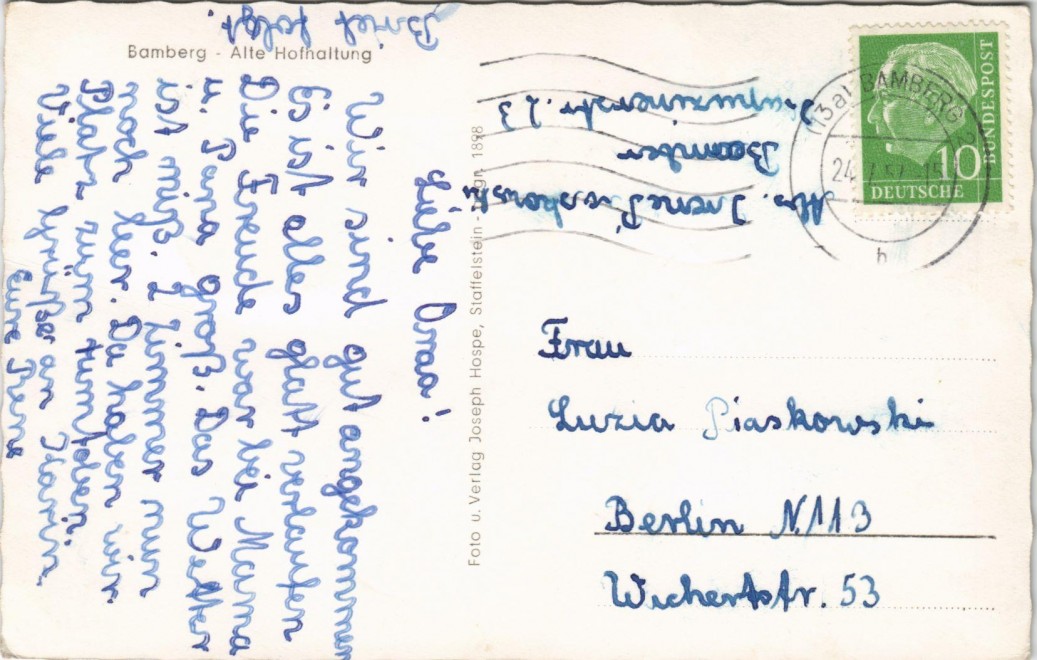 Bamberg - Alte Hofhaltung
Liebe Omaa!
Wir sind gut angekommen
Es ist alles glatt verlaufen
Die Freude war bei Mama
u. Papa groß. Das Wetter
ist mieß. 2 Zimmer nun
noch leer. Da haben wir
Platz zum
Viele Grüße an
Eure Irene
Brief folgt.
Foto u. Verlag Joseph Hospe, Staffelstein - 1898
Abs. Irene Piaskowski
Bamberg
23
(13a) BAMBERG 2
24. 57.-15
h
10
DEUTSCHE
BUNDESPOST
Frau
Luzia Piaskowski
Berlin N 113
Wichertstr. 53